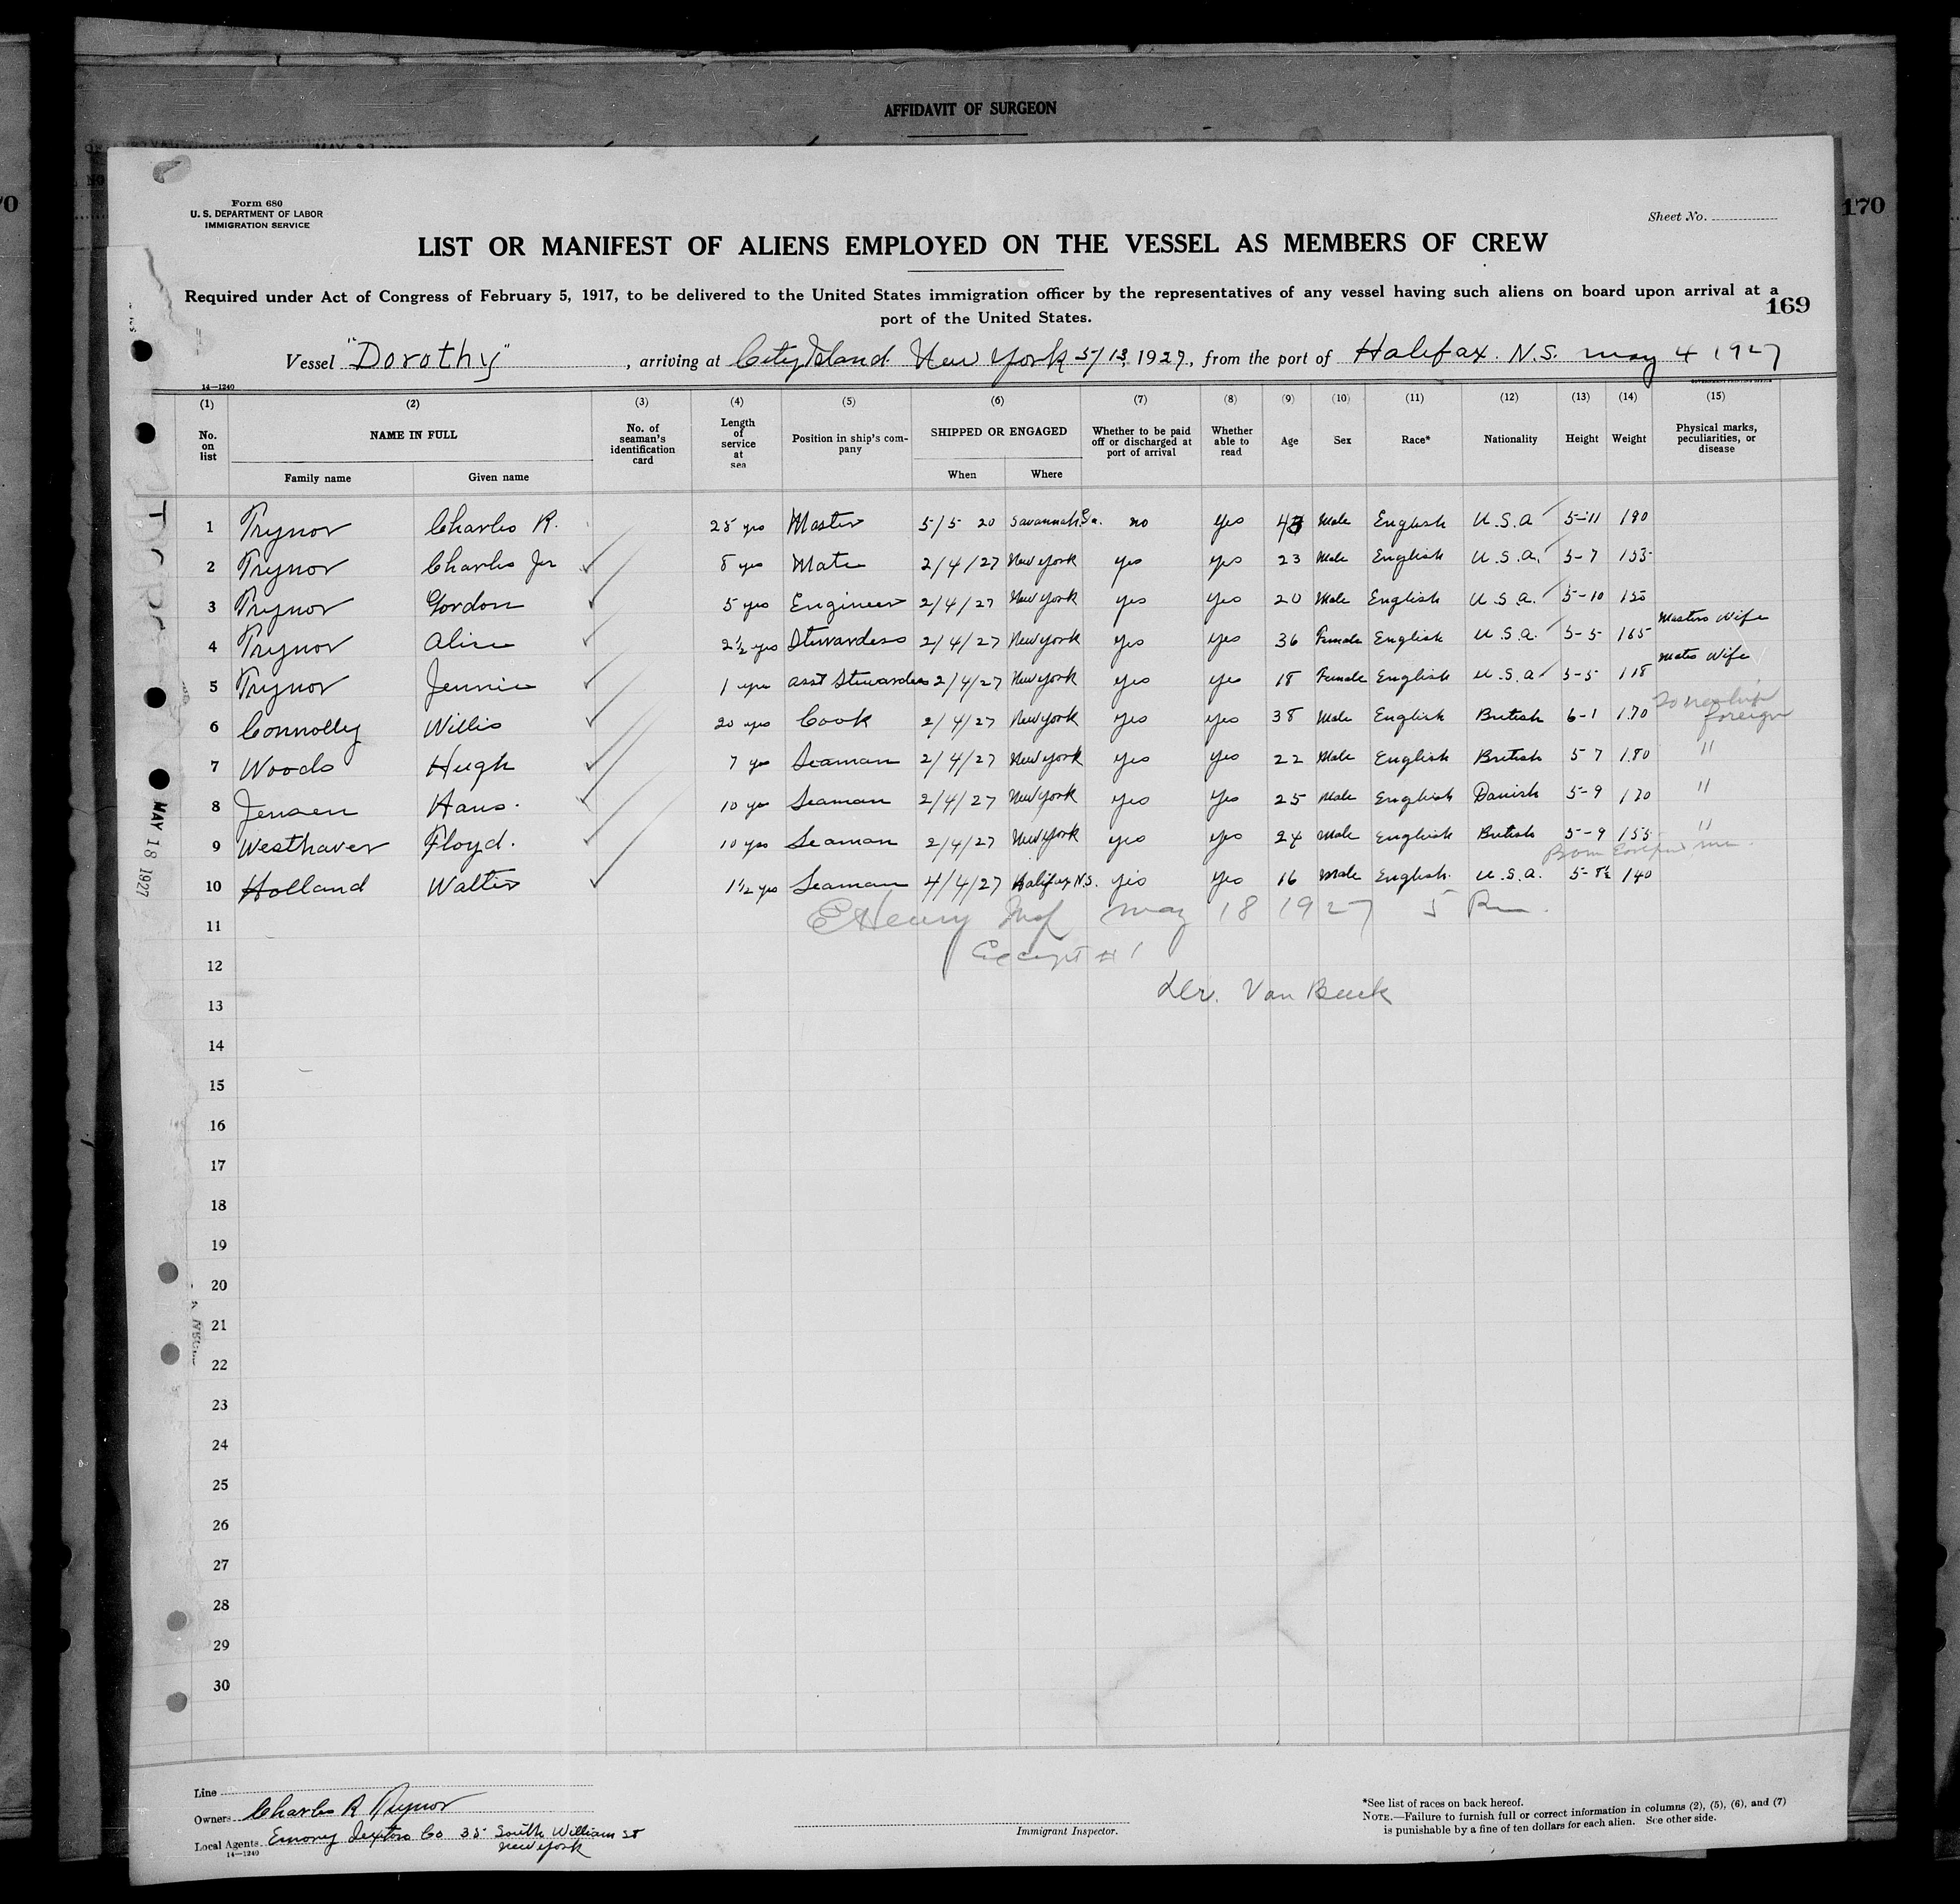 AFFIDAVIT OF SURGEON
170
Form 680
U. S. DEPARTMENT OF LABOR
IMMIGRATION SERVICE
Sheet No.
LIST OR MANIFEST OF ALIENS EMPLOYED ON THE VESSEL AS MEMBERS OF CREW
Required under Act of Congress of February 5, 1917, to be delivered to the United States immigration officer by the representatives of any vessel having such aliens on board upon arrival at a
port of the United States.
169
Vessel "Dorothy", arriving at City Island New York 5/13, 1927, from the port of Halifax. N.S. May 4 1927
14—1240
(1) (2) (3) (4) (5) (6) (7) (8) (9) (10) (11) (12) (13) (14) (15)
No. on list NAME IN FULL No. of seaman's identification card Length of service at sea Position in ship's company SHIPPED OR ENGAGED Whether to be paid off or discharged at port of arrival Whether able to read Age Sex Race* Nationality Height Weight Physical marks, peculiarities, or disease
Family name Given name When Where
1 Trynor Charles R. 25 yrs Master 5/5 20 Savannah. Ga. no yes 43 Male English U.S.A 5-11 190
2 Trynor Charles Jr 8 yrs Mate 2/4/27 New York yes yes 23 Male English U.S.A. 5-7 155
3 Trynor Gordon 5 yrs Engineer 2/4/27 New York yes yes 20 Male English U.S.A. 5-10 150
4 Trynor Alice 2½ yrs Stewardess 2/4/27 New York yes yes 36 Female English U.S.A. 5-5 165 Masters Wife
5 Trynor Jennie 1 yrs asst Stewardess 2/4/27 New York yes yes 18 Female English U.S.A 5-5 118 Mates Wife
6 Connolly Willis 20 yrs Cook 2/4/27 New York yes yes 38 Male English British 6-1 170 To reship foreign
7 Woods Hugh 7 yrs Seaman 2/4/27 New York yes yes 22 Male English British 5 7 180 "
8 Jensen Hans. 10 yrs Seaman 2/4/27 New York yes yes 25 Male English Danish 5-9 170 "
9 Westhaver Floyd. 10 yrs Seaman 2/4/27 New York yes yes 24 Male English British 5-9 155 "
Born
10 Holland Walter 1½ yrs Seaman 4/4/27 Halifax N.S. yes yes 16 Male English. U.S.A. 5-8½ 140
11 E Henry Insp May 18 1927 5 Pm.
12 Except # 1
13 Van Beuk
14
15
16
17
18
19
20
21
22
23
24
25
26
27
28
29
30
MAY 18 1927
Line
Owners Charles R Trynor
Local Agents Emory Sexton Co 35 South William St
New York
14—1240
Immigrant Inspector.
*See list of races on back hereof.
NOTE.—Failure to furnish full or correct information in columns (2), (5), (6), and (7)
is punishable by a fine of ten dollars for each alien. See other side.